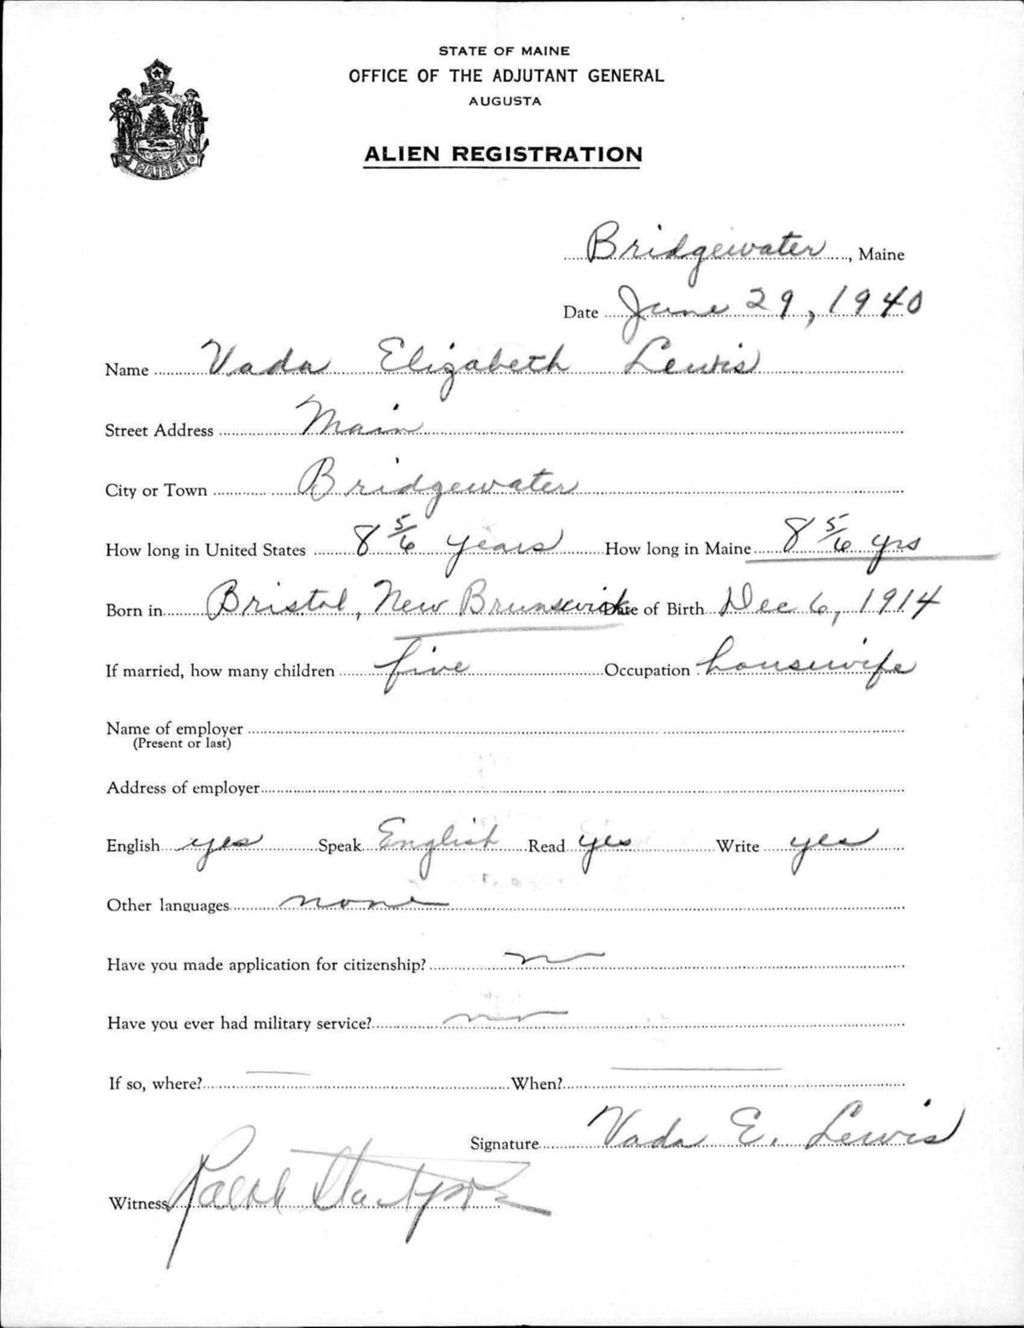 STATE OF MAINE
OFFICE OF THE ADJUTANT GENERAL
AUGUSTA
ALIEN REGISTRATION
MAINE
Bridgewater, Maine
Date June 29, 1940
Name Vada Elizabeth Lewis
Street Address Main
City or Town Bridgewater
How long in United States 8 5/6 years How long in Maine 8 5/6 yrs
Born in Bristol, New Brunswick Date of Birth Dec 6, 1914
If married, how many children five Occupation housewife
Name of employer
(Present or last)
Address of employer
English yes Speak English Read yes Write yes
Other languages none
Have you made application for citizenship? no
Have you ever had military service? no
If so, where? — When? —
Signature Vada E. Lewis
Witness Ralph